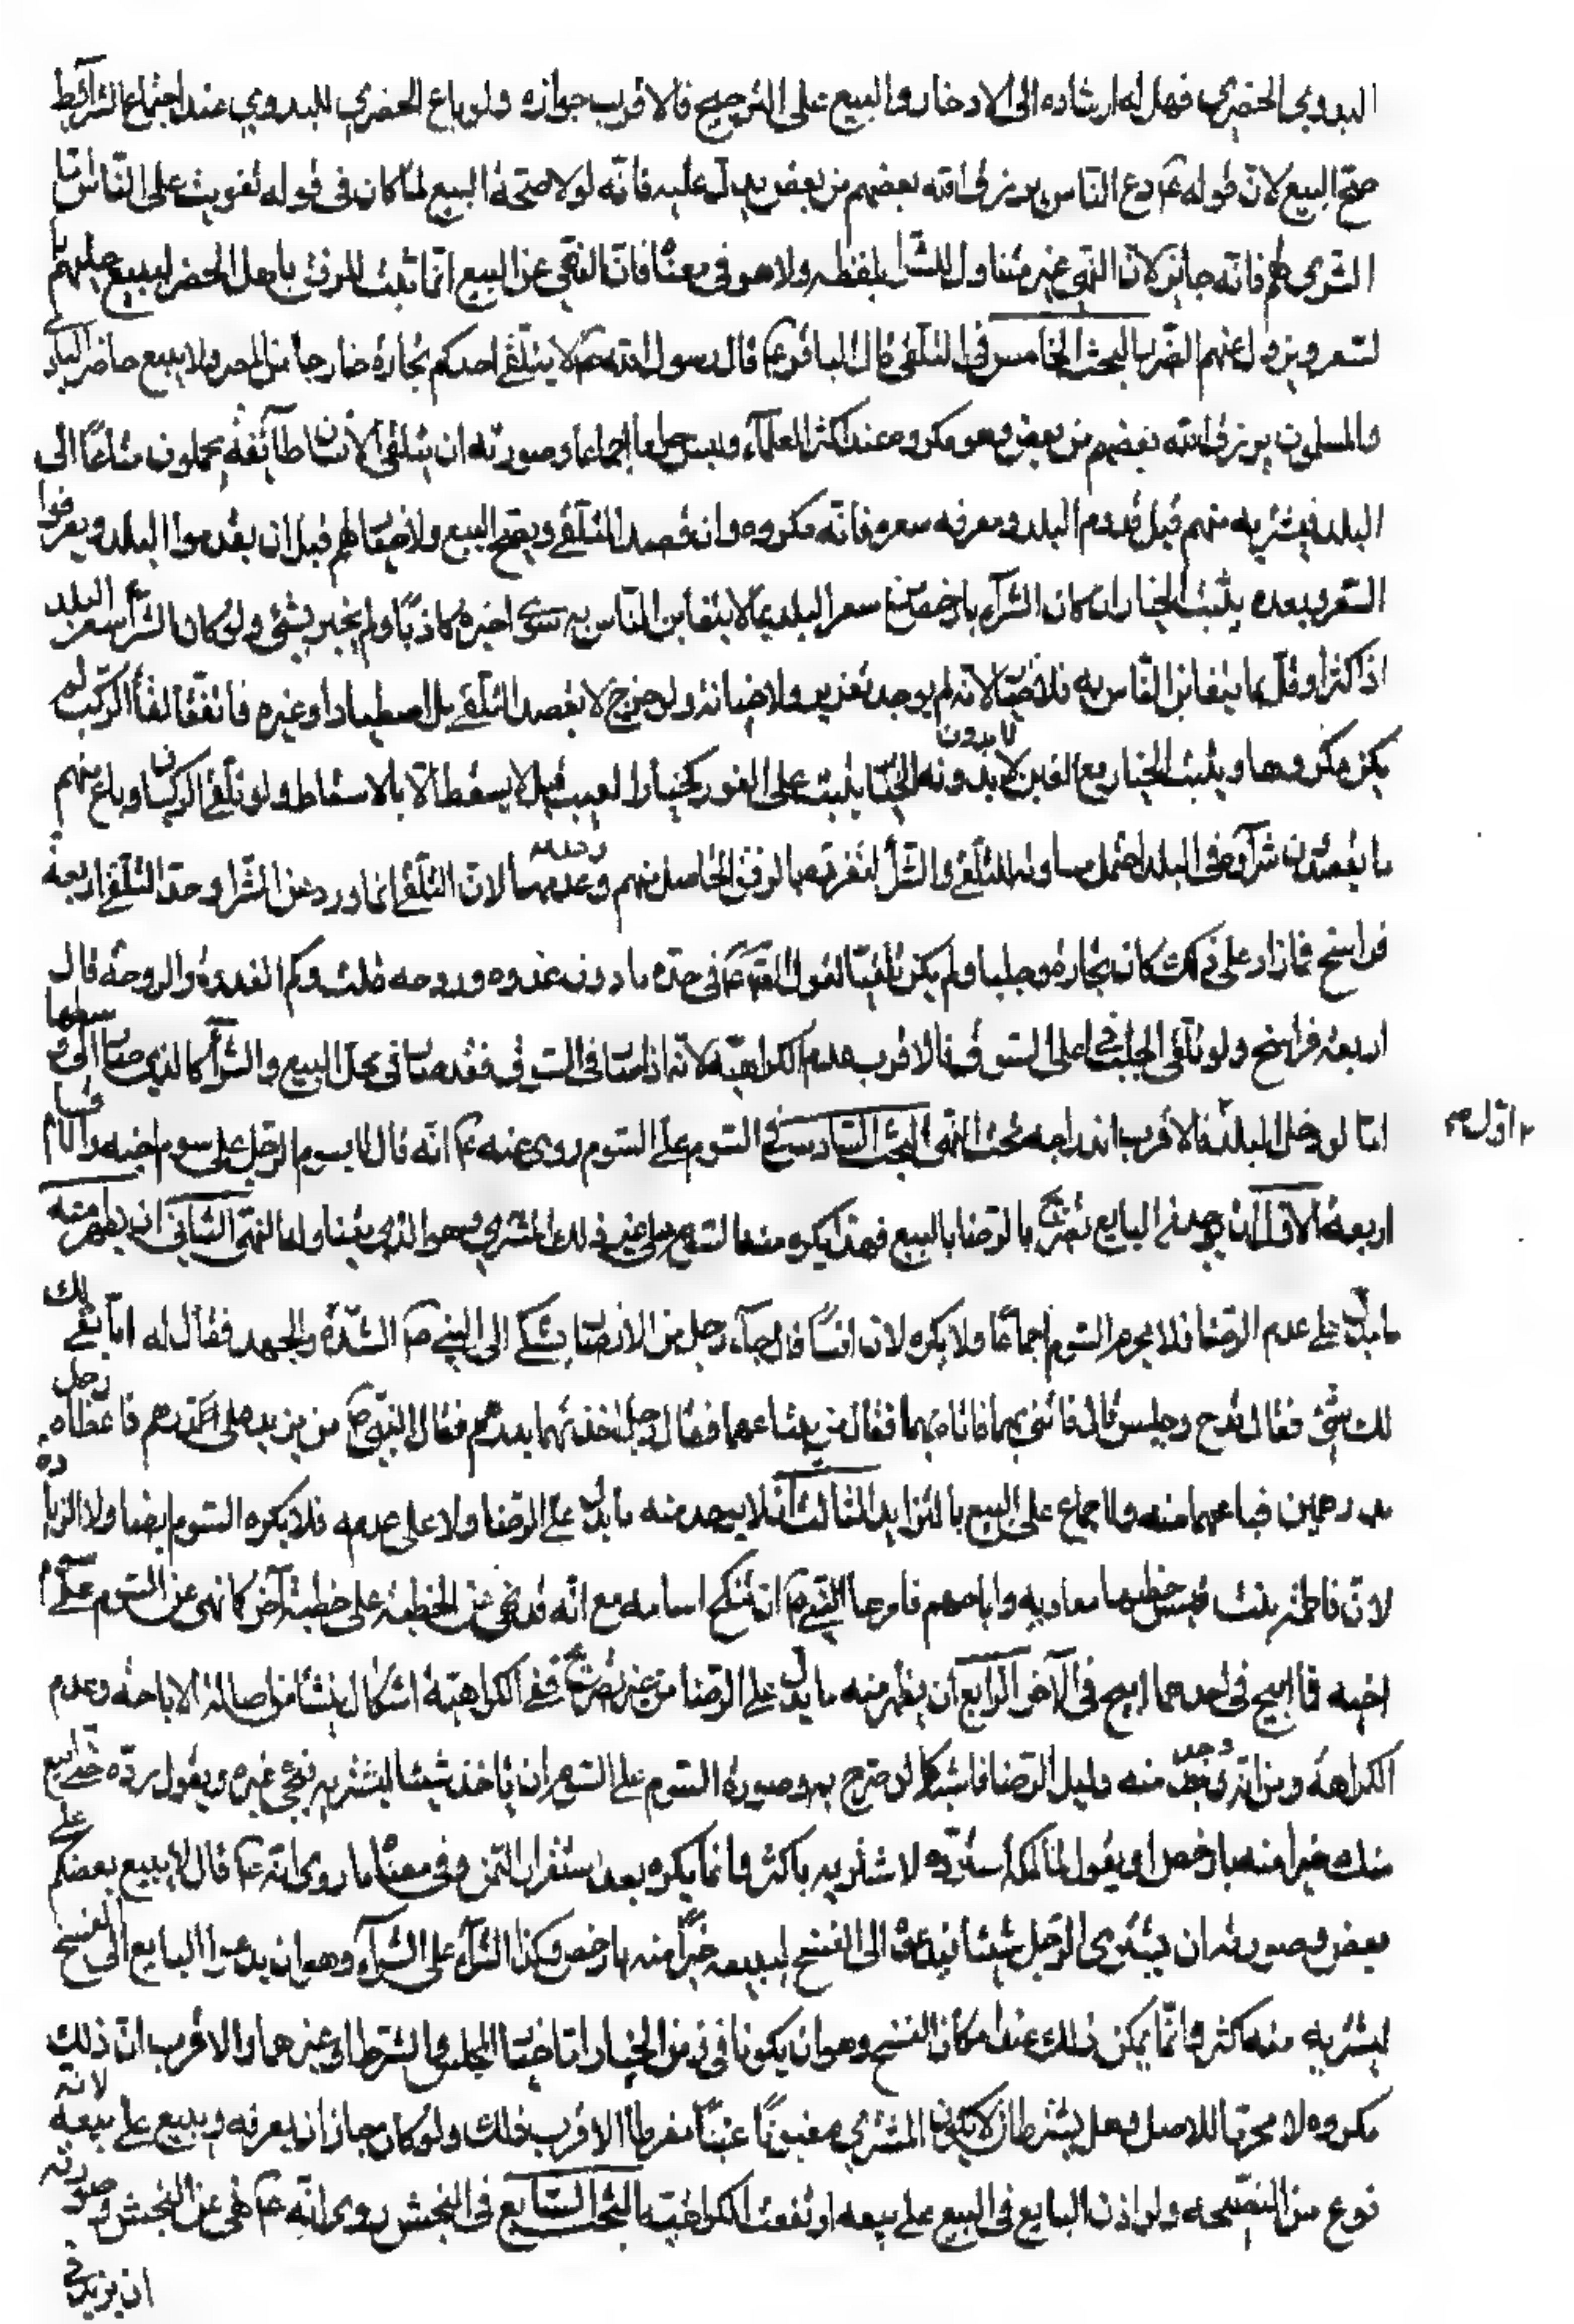 البدوي الحضري فهل له ارشاده الى الادخار والبيع على التدريج فالاقرب جوازه ولو باع الحضري للبدوي عند اجتماع الشرائط
صح البيع لان قوله ع دع الناس يرزق الله بعضهم من بعض يدل عليه فانه لولا صحة البيع لما كان في قوله تفويت على الناس اما
الشرى لهم فانه جايز لان النهي غير متناول للشرا بلفظه ولا هو في معناه فان النهي عن البيع انما ثبت للرفق باهل الحضر ليبيع عليهم
لسعر ويزول عنهم الضرر البحث الخامس في التلقي قال الباقر ع قال رسول الله ص لا يتلقى احدكم تجارة خارجا من المصر ولا يبيع حاضر لباد
والمسلمون يرزق الله بعضهم من بعض وهو مكروه عند اكثر العلماء وليس حراما اجماعا وصورته ان يتلقى الانسان طائفة يحملون متاعا الى
البلد فيشتريه منهم قبل قدوم البلد ومعرفه سعره فانه مكروه وان قصد التلقي ويصح البيع ولا خيار لهم قبل ان يقدموا البلد ويعرفوا
السعر وبعده يثبت الخيار ان كان الشراء بارخص من سعر البلد بما لا يتغابن الناس به سوى اخبره كاذبا او لم يخبر بشئ ولو كان الشرا بسعر البلد
اذ اكثر او قل بما يتغابن الناس به فلا خيار لانه لم يوجد تغرير ولا خيانة ولو خرج لا بقصد التلقي بل اصطياد او غيره فاتفق لقا الركب لم
يكن مكروها ويثبت الخيار مع الغبن لا بدونه لا بدون الخيار يثبت على الفور كخيار العيب قيل لا يسقط الا بالاسقاط ولو تلقى الركبان وباع منهم
ما يقصدون شراؤه في البلد احتمل مساواته للتلقي والشرا لتفويتهما الرفق الحاصل منهم وعدمها لان التلقي انما ورد عن الشرا وحد التلقي اربعة
فراسخ فما زاد على ذلك كان تجارة وجلبا ولم يكن تلقيا لقول الصادق ع في حده ما دون غدوة وروحه قلت وكم الغدوة والروحة قال
اربعة فراسخ ولو تلقى الجلب في اعلى السوق فالاقرب عدم الكراهية لانه اذا صار في السوق فقد صار في محل البيع والشرا كالذي صار الى وسطها
اما لو دخل البلد فالاقرب اندراجه تحت النهي البحث السادس في السوم على السوم روى عنه ع انه قال لا يسوم الرجل على سوم اخيه والاقسام
اول ص
اربعة الاول ان يوجد من البايع تصريح بالرضا بالبيع فهذا يكره منه السوم على غير ذلك المشتري وهو الذي يتناوله النهي الثاني ان يظهر منه
ما يدل على عدم الرضا فلا يحرم السوم اجماعا ولا يكره لان انسا قال جاء رجل من الانصار يشكي الى النبي ص الشدة والجهد فقال له اما بقى لك
لك شئ فقال قدح وحلس قال فاتني بهما فاتاه بهما فقال من يبتاعهما فقال رجل اخذتهما بدرهم فقال النبي ص من يزيد على الدرهم فاعطاه رجل
بدرهمين فباعهما منه والاجماع على البيع بالتزايد الثالث ان لا يوجد منه ما يدل على الرضا ولا على عدمه فلا يكره السوم ايضا ولا الزيادة
لان فاطمة بنت قيس خطبها معاويه وابا جهم فامرها النبي ص ان تنكح اسامه مع انه قد نهى عن الخطبة على خطبة آخر كما نهى عن السوم على سوم
اخيه فما ابيح في احدهما ابيح في الآخر الرابع ان يظهر منه ما يدل على الرضا من غير تصريح ففي الكراهية اشكال ينشا من اصالة الاباحة وعدم
الكراهة ومن انه قد وجد منه دليل الرضا فاشبه كما لو صرح به وصورة السوم على السوم ان ياخذ شيئا ليشتريه فيجئ غيره ويقول رده حتى ابيع
منك خيرا منه بارخص او يقول لمالكه استرده لاشتريه باكثر وانما يكره بعد استقرار الثمن وفي معناه ما روي انه ع قال لا يبيع بعضكم على
بعض وصورته ان يشتري الرجل شيئا فيدعى الى الفسخ ليبيعه خيرا منه بارخص وكذا الشراء على الشراء وهو ان يدعوا البايع الى الفسخ
ليشتريه منه باكثر وانما يمكن ذلك عند امكان الفسخ وهو ان يكونا في زمن الخيار اما خيار المجلس او الشرط او غيرهما والاقرب ان ذلك
مكروه لا محرما للاصل وهل يشترط ان لا يكون المشتري مغبونا غبنا مفرطا الاقرب ذلك ولو كان جاز ان يعرفه ويبيع على بيعه لانه
نوع من النصيحة ولو اذن البايع في البيع على بيعه ارتفعت الكراهية البحث السابع في النجش روى انه ع نهى عن النجش وصورته
ان يزيد في